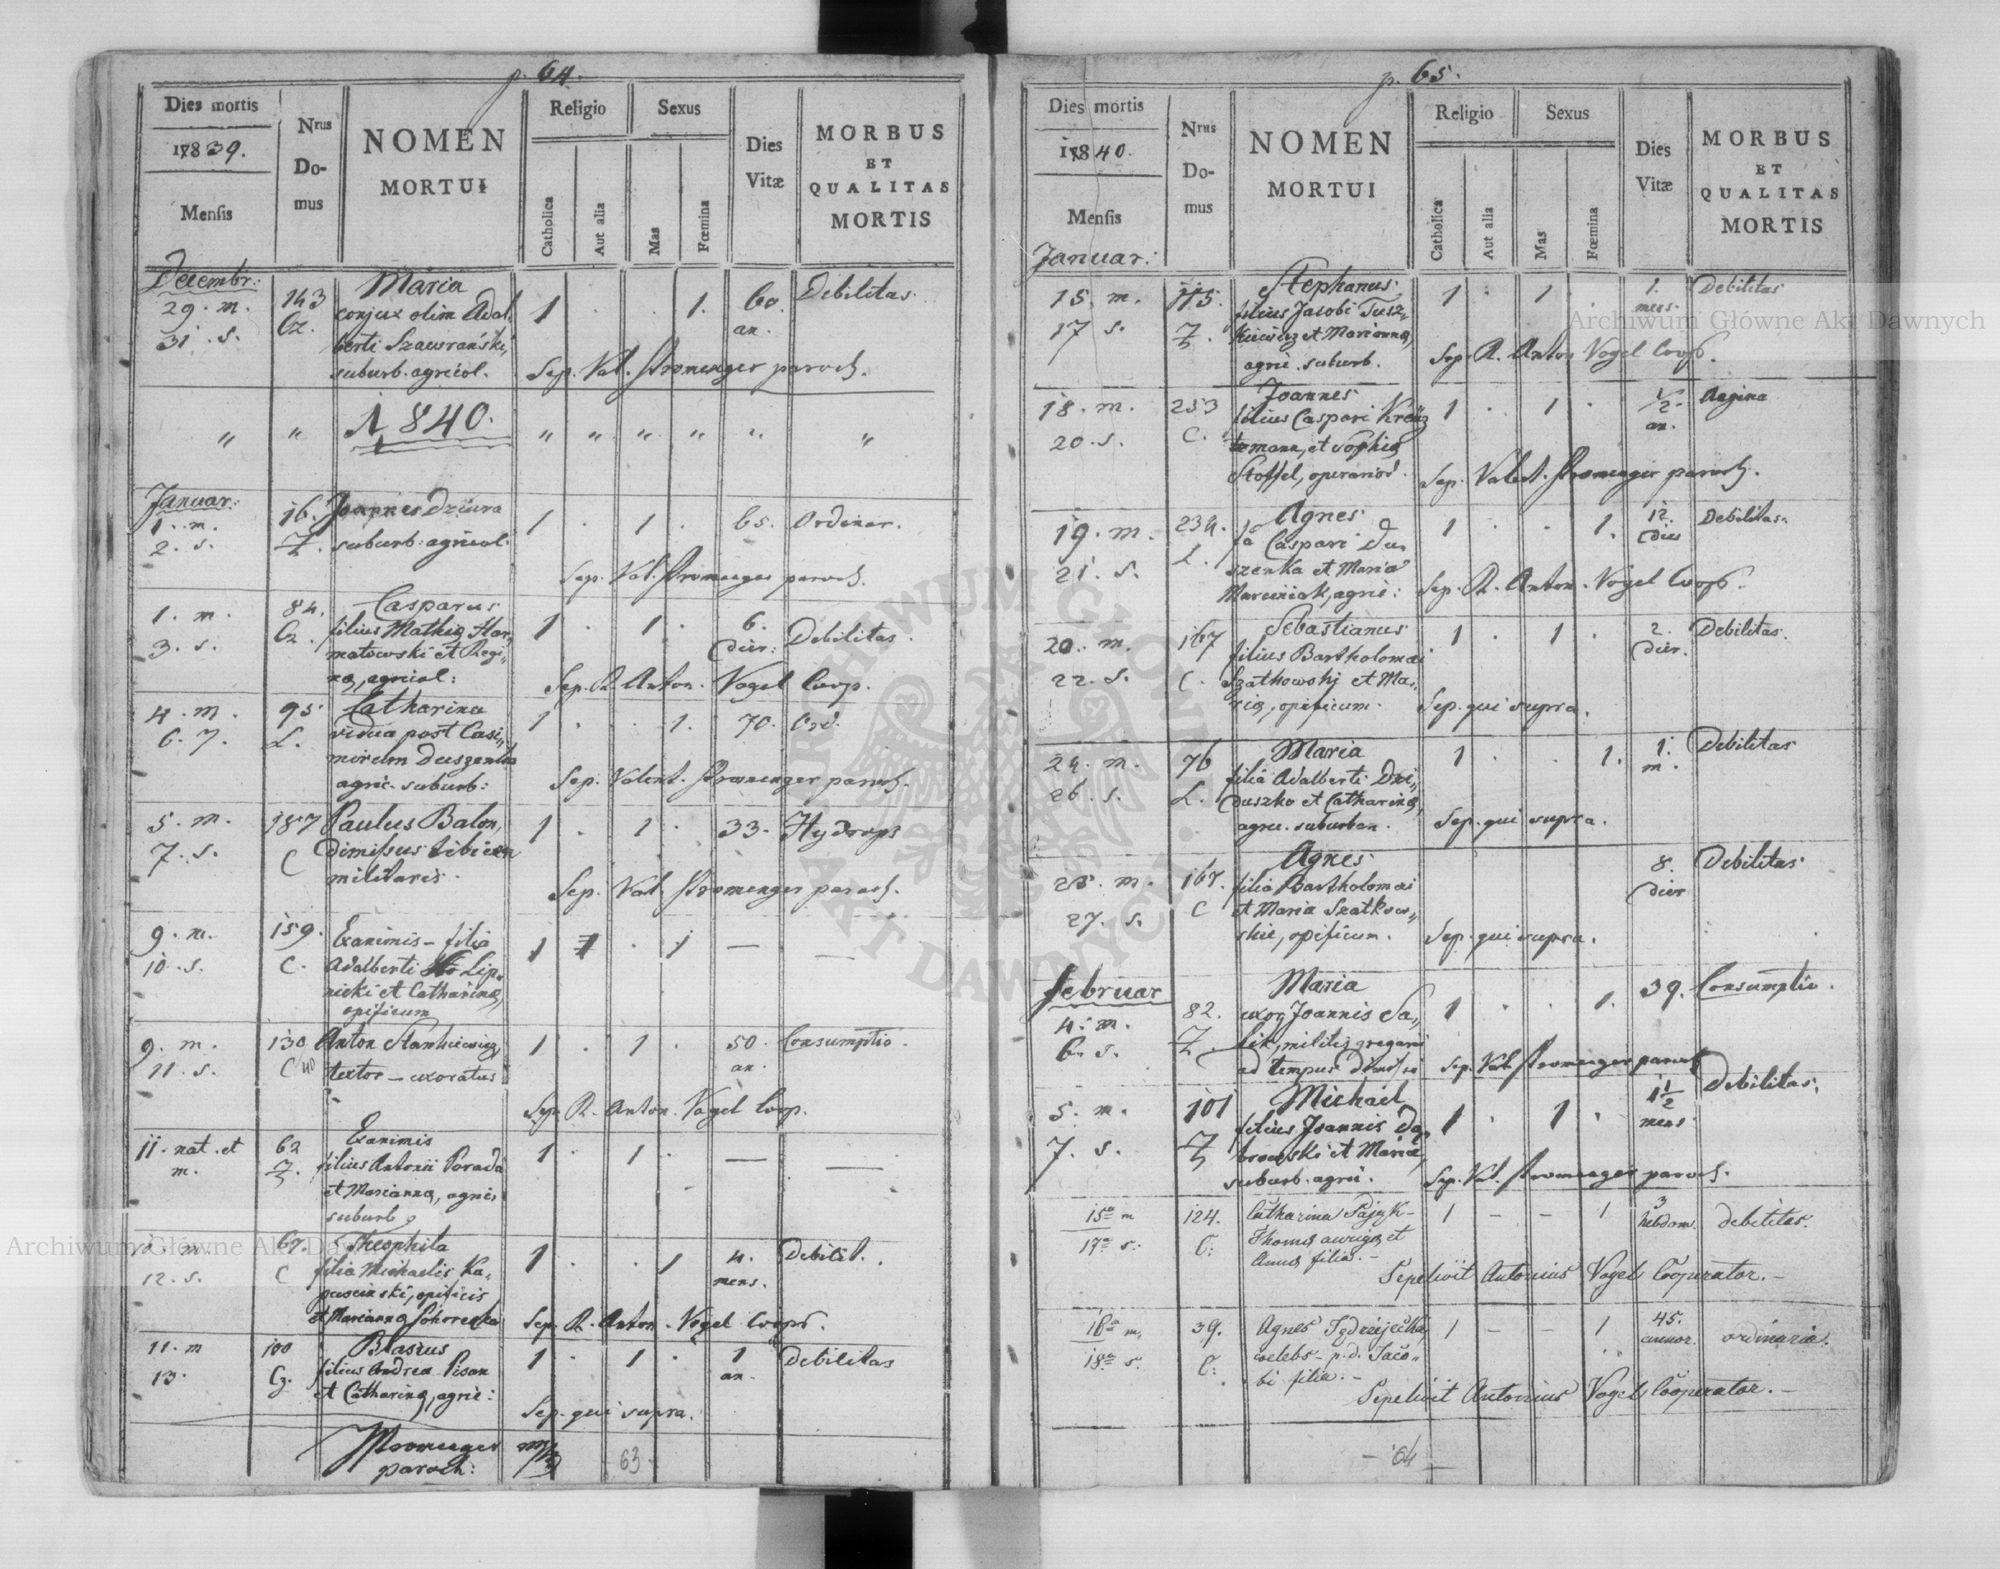 p. 64.
Dies mortis
1839.
Mensis
Nrus
Do-
mus
NOMEN
MORTUI
Religio
Catholica
Aut alia
Sexus
Mas
Fœmina
Dies
Vitæ
MORBUS
ET
QUALITAS
MORTIS
Decembr:
29. m. 143 Maria 1 . . 1. 60 Debilitas
31. s. Cz. conjux olim Adal- an.
berti Szawrański,
suburb. agricol. Sep. Val. Stromenger paroch.
" " 1840. " " " " " "
Januar:
1. m. 16. Joannes Dziura 1 . 1 . 65. Ordinar.
2. s. Z. suburb. agricol.
Sep. Val. Stromenger paroch.
1. m. 84. Casparus 1 . 1 . 6. Debilitas.
3. s. Cz. filius Mathiæ Har- dier:
matowski et Regi-
næ, agricol: Sep. R. Anton. Vogel Coop.
4. m. 95 Catharina 1 . . 1. 70. Ord.
6. s. L. vidua post Casi-
mirum Duszenka
agric. suburb: Sep. Valent. Stromenger paroch.
5. m. 187 Paulus Balon, 1 . 1 . 33. Hydrops
7. s. C dimissus tibicen
militaris. Sep. Val. Stromenger paroch.
9. m. 159. Exanimis - filia 1 . 1 —
10. s. C. Adalberti Lip-
nicki et Catharinæ,
opificum
9. m. 130 Anton Stankiewicz 1 . 1 . 50. Consumptio.
11. s. C textor - uxoratus an.
Sep. R. Anton. Vogel Coop.
11. nat. et 62 Exanimis 1 . 1 . — —
m. Z. filius Antonii Porada
et Mariannæ, agric:
suburb.
m 67. Theophila 1 . . 1 4. Debilit.
12. s. C filia Michaelis Ka- mens.
puscinski, opificis
et Mariannæ Sep. R. Anton. Vogel Coops.
11. m 100 Blasius 1 . 1 . 1 Debilitas
13. Cz. filius Andreæ Pison an.
et Catharinæ, agric:
Sep. qui supra.
Stromenger
paroch:
63
p. 65.
Dies mortis
1840.
Mensis
Nrus
Do-
mus
NOMEN
MORTUI
Religio
Catholica
Aut alia
Sexus
Mas
Fœmina
Dies
Vitæ
MORBUS
ET
QUALITAS
MORTIS
Januar:
15. m. 115. Stephanus 1 . 1 . 1. Debilitas
17 s. Z. filius Jacobi Tusz- mens.
kiewicz et Mariannæ,
agric. suburb. Sep. R. Anton Vogel Coop.
18. m. 253 Joannes 1 . 1 . 1/2 Angina
20. s. C. filius Caspari Kreütz an.
mann, et Sophiæ
Stoffel, operarior. Sep. Valent. Stromenger paroch.
19. m. 234. Agnes 1 . . 1. 12. Debilitas.
21. s. L. fa Caspari Du- dier
szenka et Maria
Marciniak, agric: Sep. R. Anton. Vogel Coop.
20. m. 167 Sebastianus 1 . 1 . 2. Debilitas.
22. s. C. filius Bartholomæi dier.
Szatkowski et Ma-
riæ, opificum. Sep. qui supra.
24. m. 76 Maria 1 . . 1. 1. Debilitas
26. s. L. filia Adalberti Dzi- m.
duszko et Catharinæ,
agric. suburban. Sep. qui supra.
25. m. 167. Agnes 8. Debilitas
27. s. C filia Bartholomæi dier
et Maria Szatkow-
skie, opificum. Sep. qui supra.
Februar
4. m. 82. Maria 1 . . 1. 39. Consumptio.
6. s. Z. uxor Joannis Sa-
lik, militis gregarii
ad tempus dimissi Sep. Val. Stromenger paroch
5. m. 101 Michael 1 . 1 . 1 1/2 Debilitas.
7. s. Z filius Joannis Da- mens
browski et Mariæ,
suburb. agric. Sep. Val. Stromenger paroch.
15a m 124. Catharina Pajęk - 1 – – 1 3 debilitas.
17a s. C: Thomæ aurigæ et hebdom.
Annæ filia. –
Sepelivit Antonius Vogel Cooperator. –
16a m. 39. Agnes 1 – – 1 45. ordinaria.
18a s. C: coelebs - p. d. Jaco- annor.
bi filia. –
Sepelivit Antonius Vogel Cooperator. –
- 64
Archiwum Główne Akt Dawnych
Archiwum Główne Akt Dawnych
ARCHIWUM GŁÓWNE AKT DAWNYCH